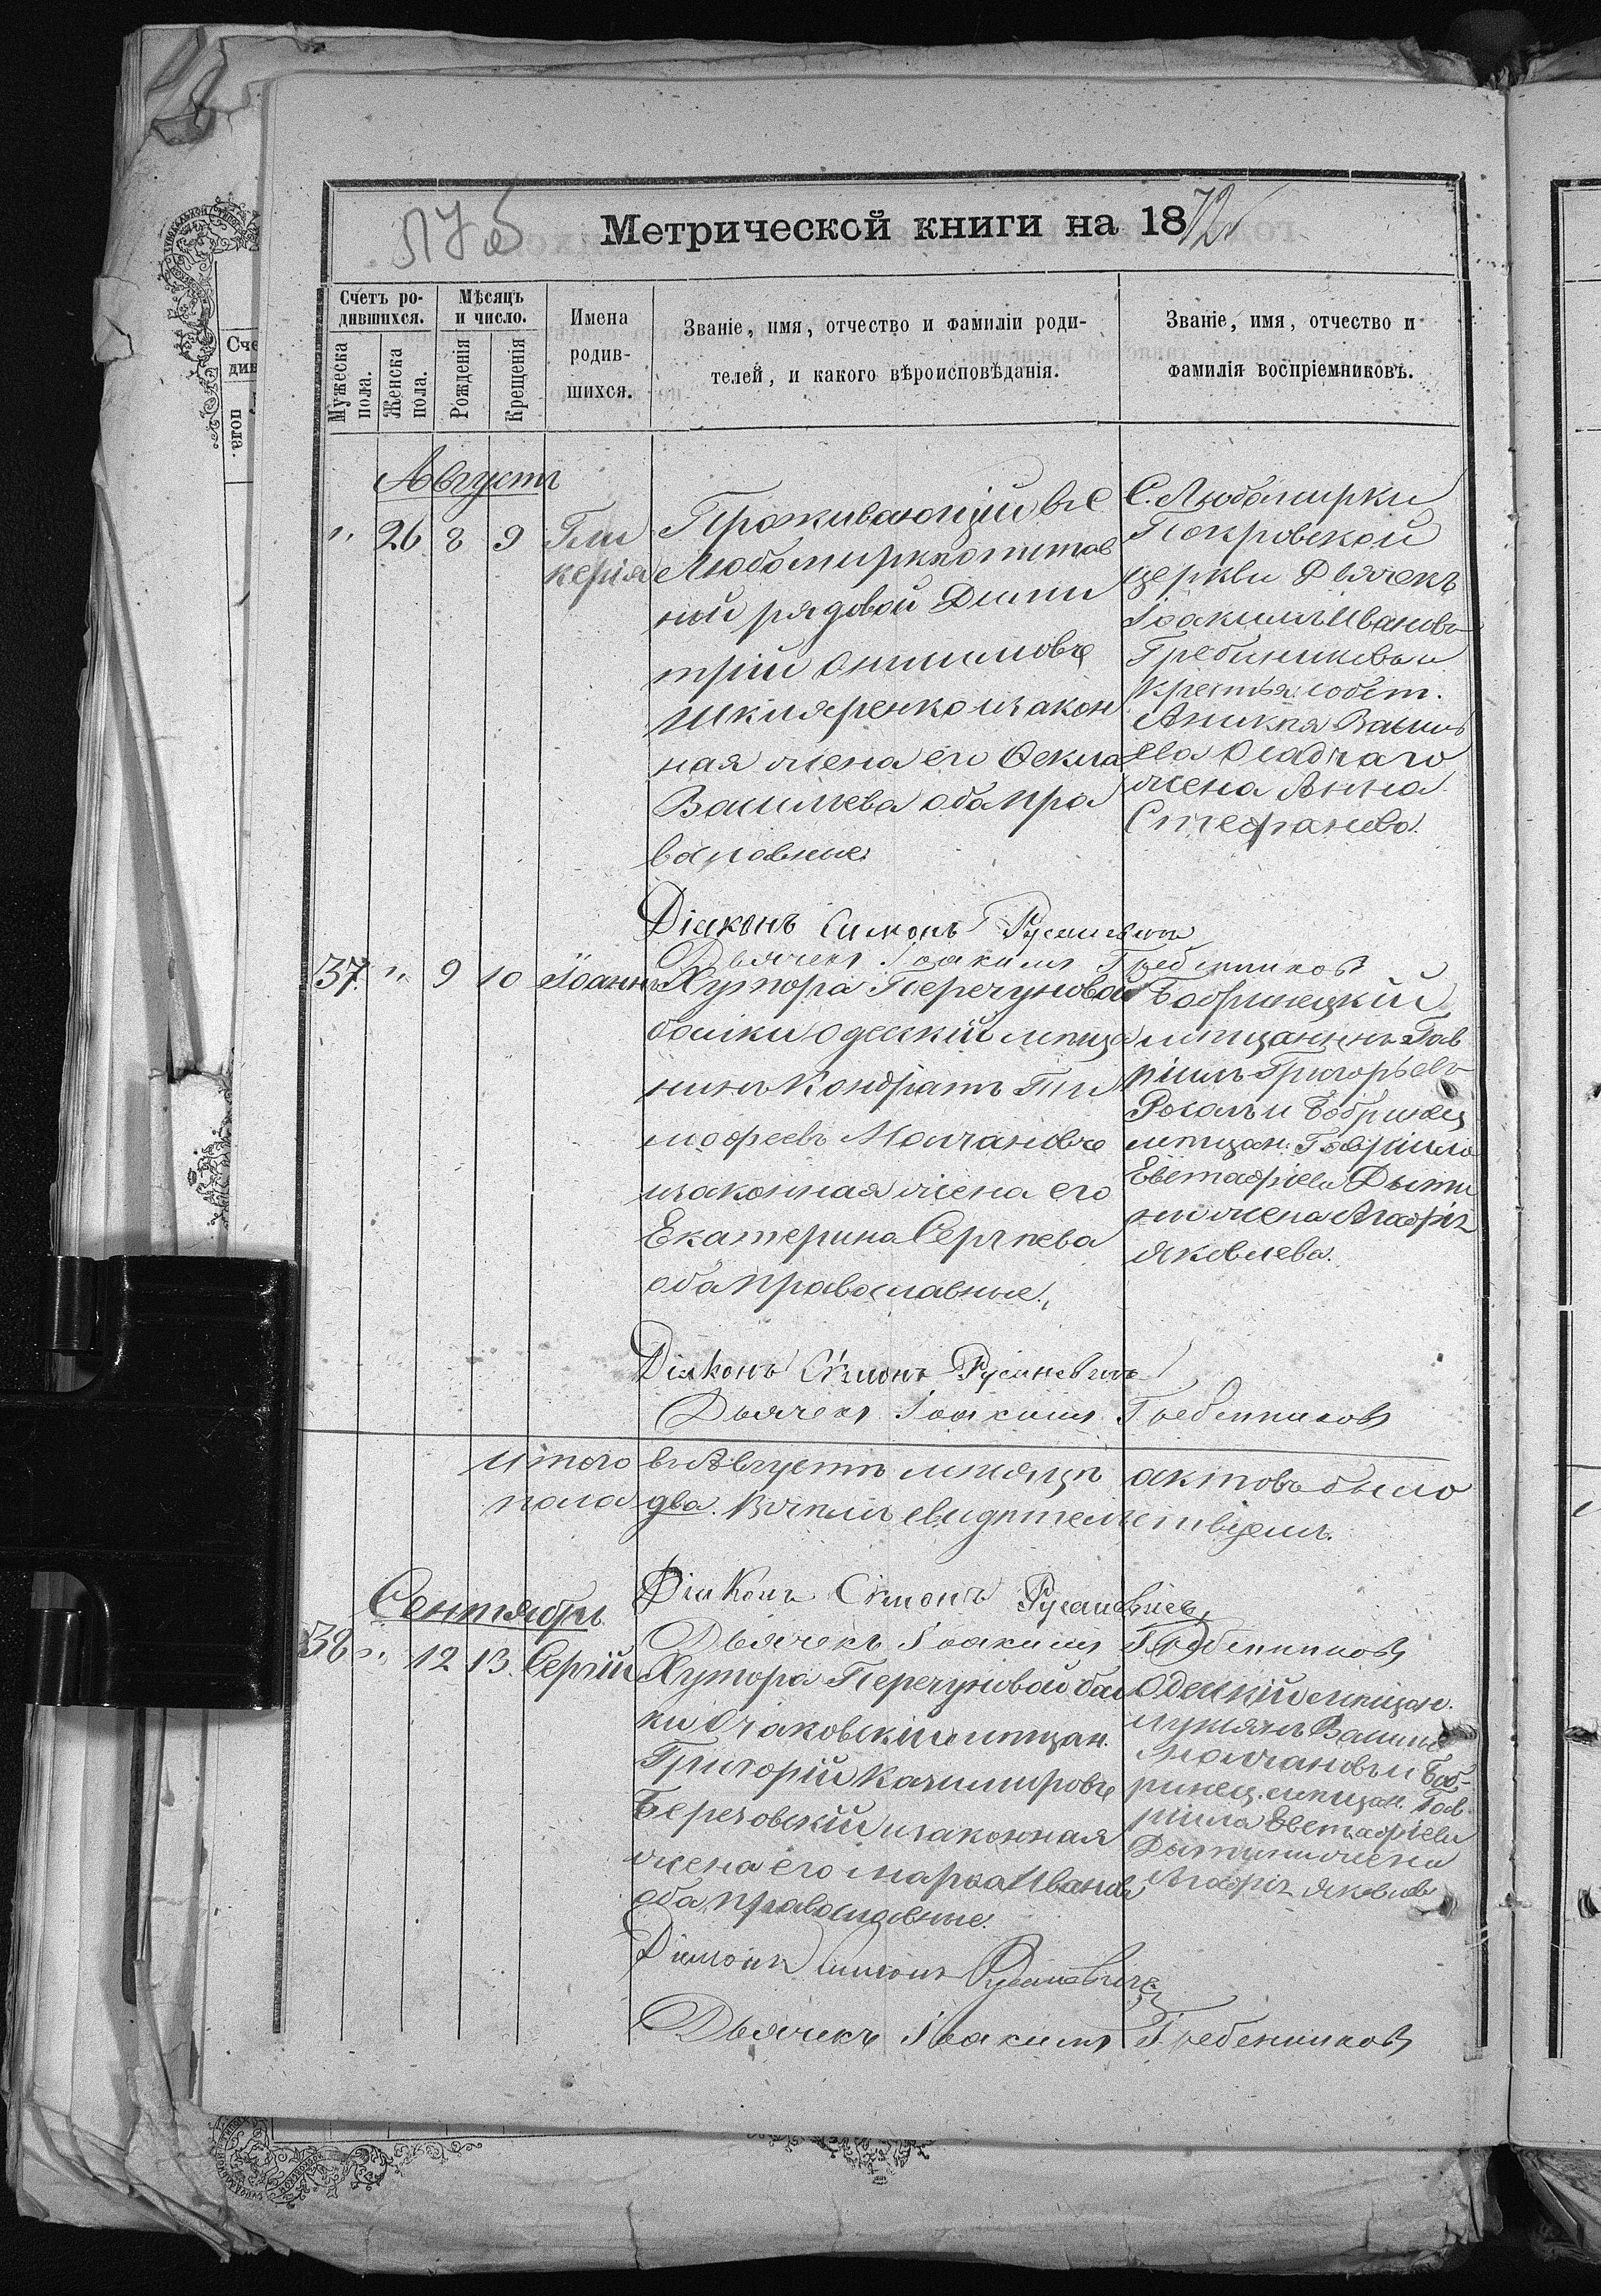 Метрической книги на 1872
Счетъ ро-
дившихся.
Мѣсяцъ
и число.
Имена
родив-
шихся.
Званіе, имя, отчество и фамиліи роди-
телей, и какого вѣроисповѣданія.
Званіе, имя, отчество и
фамилія воспріемниковъ.
Мужеска
пола.
Женска
пола.
Рожденія
Крещенія
Августъ
" 26 8 9
Гли
керія
Проживающій въ С
Любомирки отстав
ной рядовой Дими
трій Онисимовъ
Шкляренко и закон
ная жена его Ѳекла
Васильева оба пра
вославные
С. Любомирки
Покровской
церкви Дьячекъ
Іоакимъ Ивановъ
Гребениковъ и
крестья. собст.
Василь
ева
жена Анна
Стефанова.
Діаконъ Симонъ Русаневичъ
Дьячекъ Іоакимъ Гребенниковъ
37 " 9 10 Іоаннъ
Хутора Перечуновой
балки Одескій мѣща
нинъ Кондратъ Ти
мофеевъ Молчановъ
и законная жена его
Екатерина Сергѣева
оба православные.
Бобринецкій
мѣщанинъ Гав
ріилъ Григорьевъ
и Бобринец
мѣщан. Гавріила
Евстафіева
жена Агафія
Яковлева.
Діаконъ Сѵмонъ Русаневичъ
Дьячекъ Іоакимъ Гребенниковъ
Итого въ Августѣ мѣсяцѣ актовъ было
пола два. Въ чемъ свидѣтельствуемъ.
Сентябрь
Діаконъ Сѵмонъ Русаневичъ
Дьячекъ Іоакимъ Гребенниковъ
38 " 12 13. Сергій
Хутора Перечуновой бал
ки Очаковскій мѣщан.
Григорій Казимировъ
Березовскій и законная
жена его Марѳа Иванова
оба православные.
Одескій мѣщан.
Лукіянъ Васильев
Молчановъ и Боб-
ринец. мѣщан. Гав
ріила Евстафіева
жена
Агафія Яковлев
Діаконъ Симонъ Русаневичъ
Дьячекъ Іоакимъ Гребенниковъ